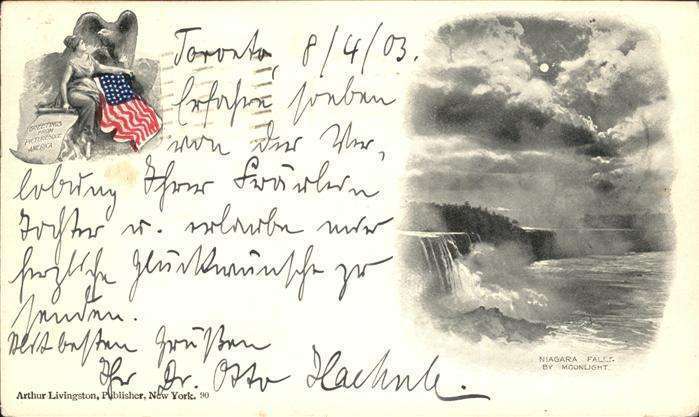 GREETINGS
FROM
PICTURESQUE
AMERICA
Toronto, 8/4/03.
Erfahre soeben
von der Ver-
lobung Ihrer Fräulein
Tochter u. erlaube mir
herzliche Glückwünsche zu
senden.
Mit besten Grüßen
Ihr Dr. Otto
NIAGARA FALLS
BY MOONLIGHT.
Arthur Livingston, Publisher, New York. 90